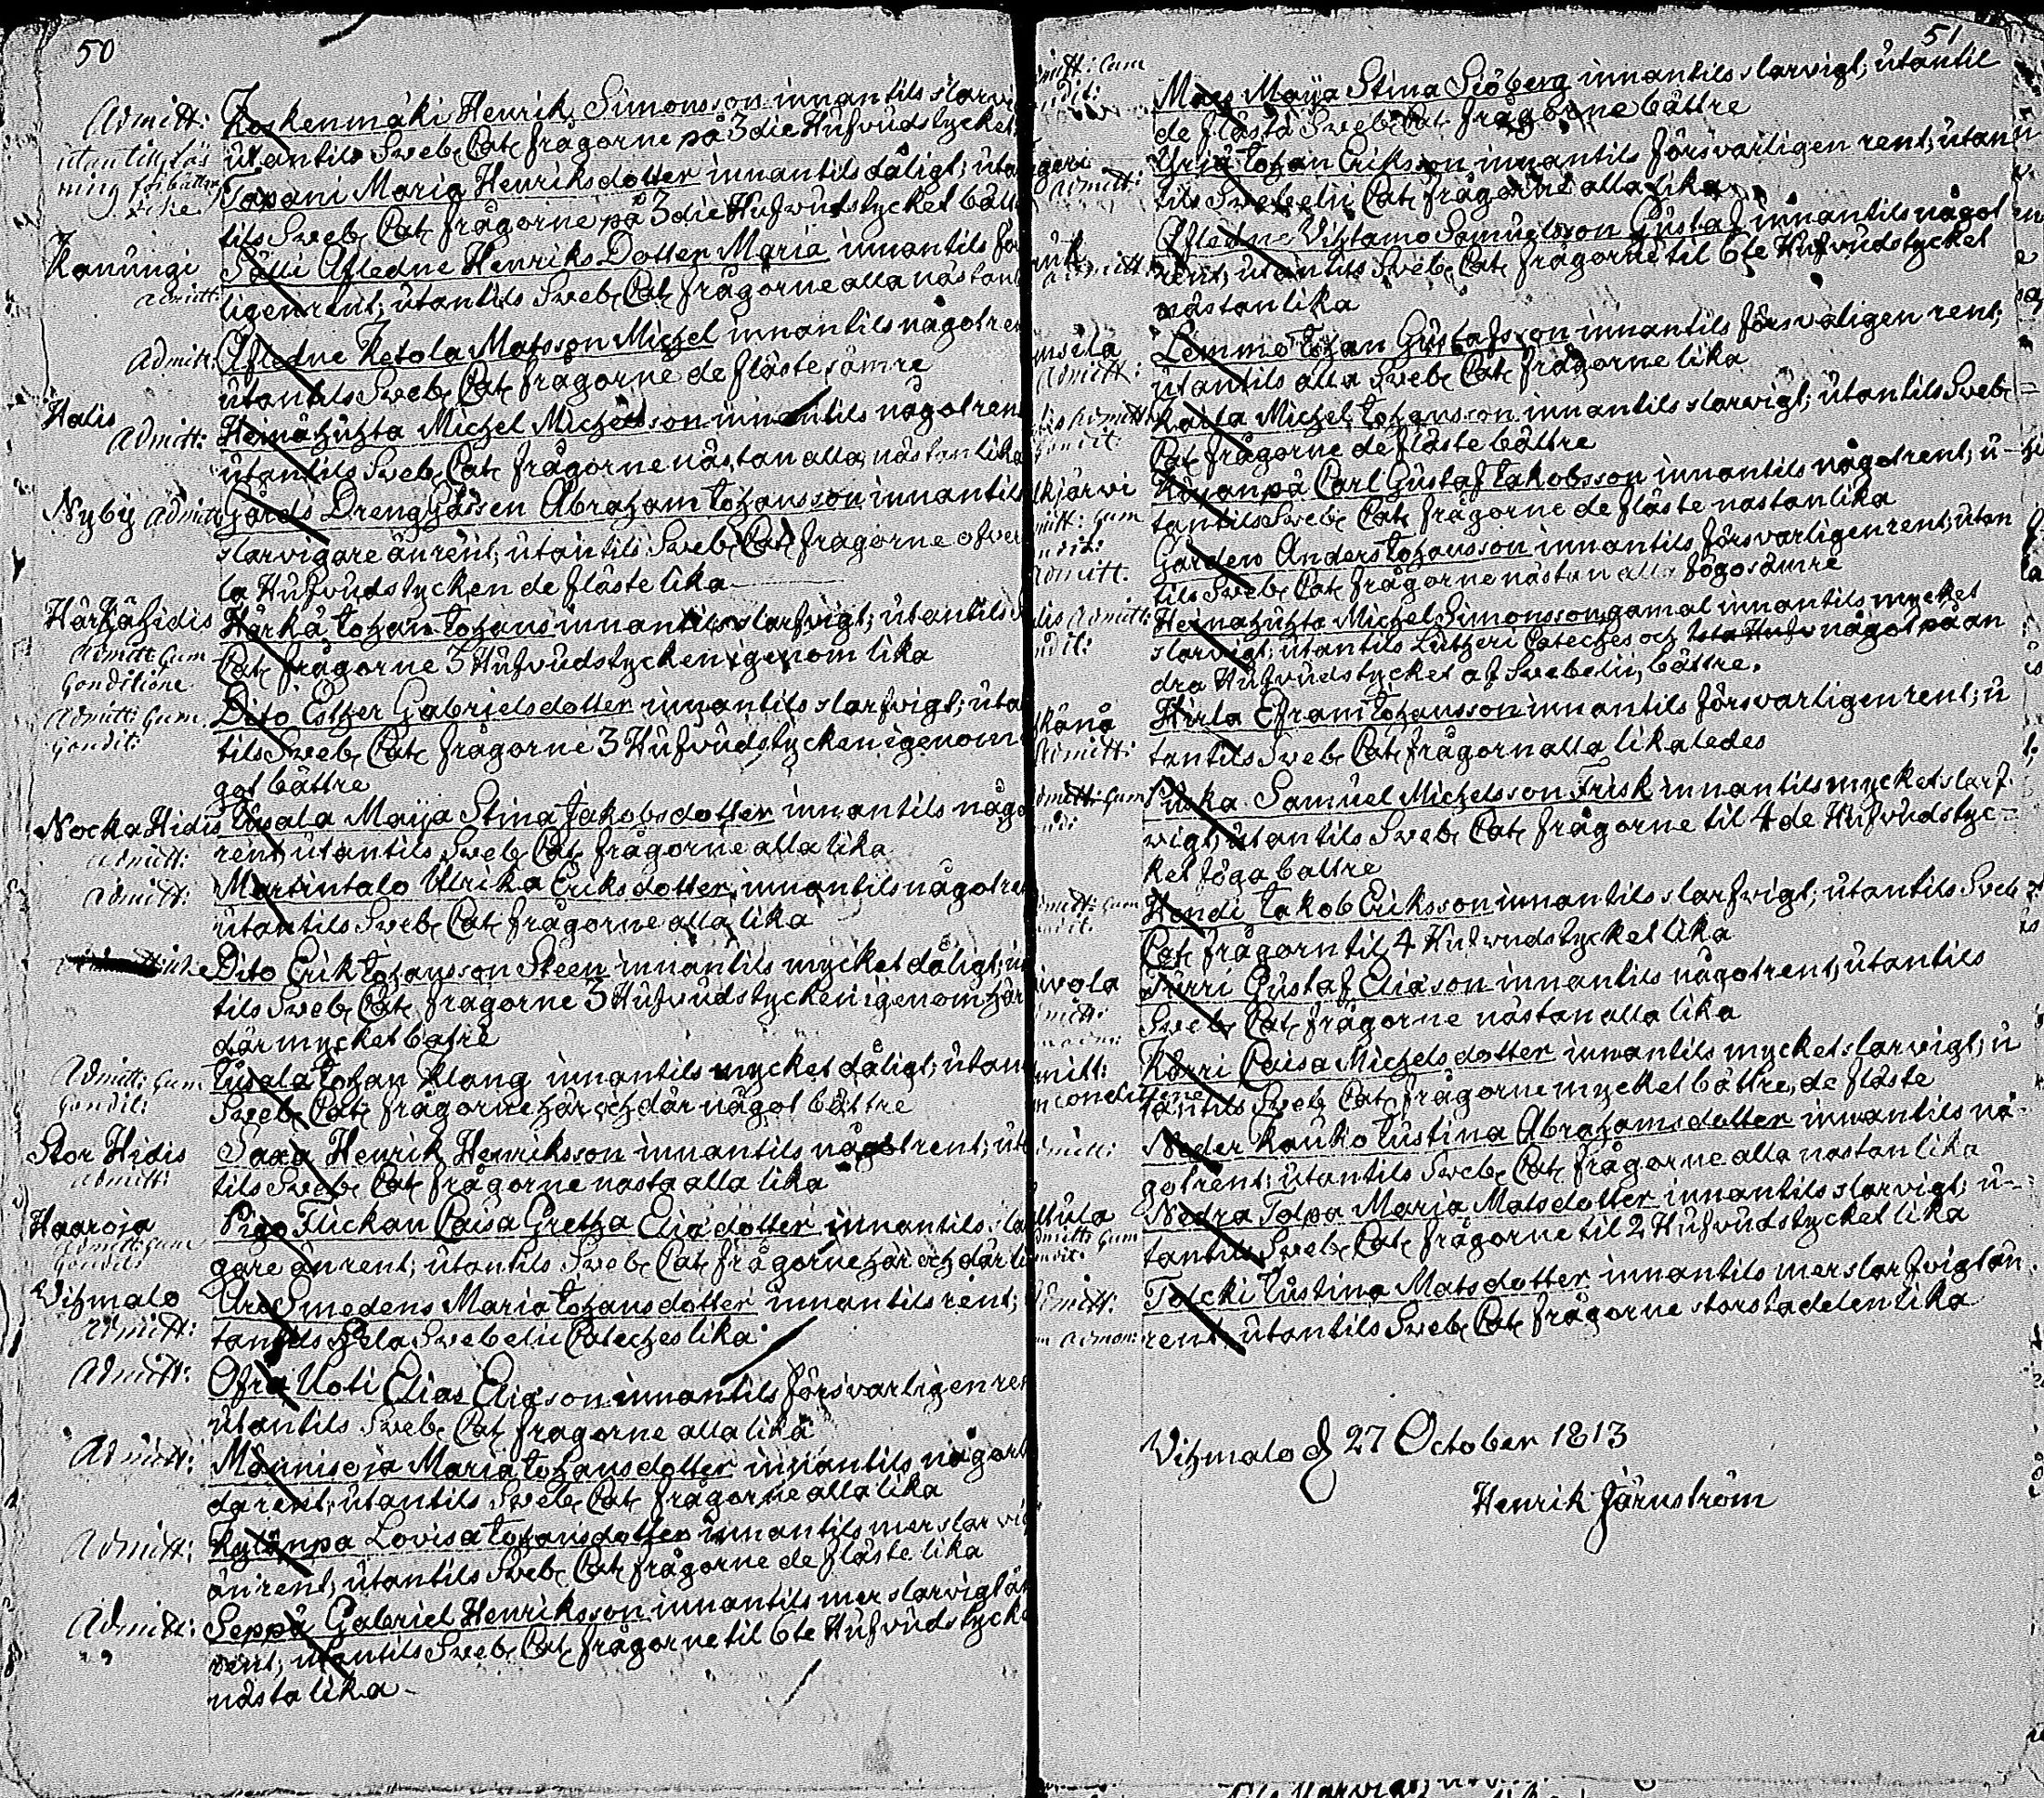 50
Admitt: Koskenmäki Henrik Simonsson innantils slarvi
utantils Sveb. Cat. frågorne på 3die Hufvudstycket
Tapani Maria Henriksdotter innantils dåligt; utan
tils Sveb. Cat. frågorne på 3die Hufvudstycket bätt
Kanungi Sälli Afledne Henriks Dotter Maria innantils för
admitt: ligen rent; utantils Sveb. Cat. frågorne alla nästan
Admitt: Afledne Ketola Matsson Michel innantils något ren
utantils Sveb. Cat. frågorne de fläste sämre
Halis Heinähuhta Michel Michelsson innantils något rent
Admitt: utantils Sveb. Cat. frågorne nästan alla, nästan lika
Nyby Admitt: Gårds Dreng Gåssen Abraham Johansson innantils
slarvigare än rent; utantils Sveb. Cat. frågorne öfver
la Hufvudstycken de fläste lika
Härkähidis Härkä Johan Johans innantils slarfvigt; utantils S
Admitt Cum Cat. frågorne 3 Hufvudstycken igenom lika
Conditione
Admitt: Cum Dito Esther Gabrielsdotter innantils slarfvigt; uta
Condit: tils Sveb. Cat. frågorne 3 Hufvudstycken igenom
got bättre
Nocka Hidis Uusala Maija Stina Jakobsdotter innantils någo
admitt: rent utantils Sveb. Cat. frågorne alla lika
admitt: Martintalo Ulrika Eriksdotter innantils något re
utantils Sveb. Cat. frågorne alla lika
Dito Erik Johansson Steen innantils mycket dåligt; u
tils Sveb. Cat. frågorne 3 Hufvudstycken igenom här
där mycket batre
Admitt: Cum Tusala Johan Klang innantils mycket dåligt; utan
Condit: Sveb. Cat. frågorne här och där något bättre
Stor Hidis Saxa Henrik Henriksson innantils något rent; uta
admitt: tils Sveb. Cat. frågorne nasta alla lika
Haaroja Piga Flickan Caisa Gretha Elia dotter innantils sla
Admitt: Cum gare än rent; utantils Sveb. Cat. frågorne här och där li
Condit:
Vihmalo Aro Smedens Maria Johansdotter innantils rent;
Admitt: tantils hela Svebelii Cateches lika
Admitt: Ofra Uoti Elias Eliason innantils försvarligen re
utantils Sveb. Cat. fragorne alla lika
Admitt: Männisoja Maria Johansdotter innantils någorl
da rent; utantils Sveb. Cat. frågorne alla lika
Admitt: Kylänpa Lovisa Johansdotter innantils mer slarvig
än rent; utantils Sveb. Cat. frågorne de fläste lika
Admitt: Seppä Gabriel Henriksson innantils mer slarvigt än
rent; utantils Sveb. Cat. frågorne til 6te Hufvudstycke
nästa lika
51
Maija Stina Siöberg innantils slarvigt; utantil
de flästa Sveb. Cat. frågorne bättre
admitt: Yrjä Johan Eriksson innantils försvarligen rent; utan
tils Svebelii Cat. frågorne alla lika
Afledne Vihtamo Samuelsson Gustaf innantils något
rent; utantils Sveb. Cat. frågorne til 6te Hufvudstycket
nästan lika
Lemmo Johan Gustafsson innantils försvaligen rent;
admitt: utantils alla Sveb. Cat. frågorne lika
Kaila Michel Johansson innantils slarvigt; utantils Sveb.
Cat. frågorne de fläste bättre
Carl Gustaf Jakobsson innantils något rent; u-
tantils Sveb. Cat. frågorne de fläste nastan lika
Garden Anders Johansson innantils försvarligen rent; utan
admitt. tils Sveb. Cat. frågorne nästan alla fogo sämre
Heinahuhta Michel Simonsson gamal innantils mycket
slarvigt; utantils Lutheri Cateches och något på an
dra Hufvudstycket af Svebelii, bättre.
Hirla Efraim Johansson innantils försvarligen rent; u
Admitt: tantils Sveb. Cat. frågorn alla likaledes
Samuel Michelsson Frisk innantils mycket slarf
vigt; utantils Sveb. Cat. frågorne til 4de Hufvudstyc=
ket föga battre
Hendi Jakob Eriksson innantils slarfvigt; utantils Sveb
Cat. frågorn til 4 Hufvudstycket lika
Turri Gustaf Eliason innantils något rent; utantils
Sveb. Cat. frågorne nästan alla lika
Korri Caisa Michelsdotter innantils mycket slarvigt; u
conditione tantils Sveb. Cat. frågorne mycket bättre, de fläste
Neder Kauko Justina Abrahamsdotter innantils nå-
got rent; utantils Sveb. Cat. frågorne alla nastan lika
Nedra Tolpa Maria Matsdotter innantils slarvigt; u-
tantils Sveb. Cat. frågorne til 2 Hufvudstycket lika
Tolcki Justina Matsdotter innantils mer slarfvigt än
rent; utantils Sveb. Cat. frågorne storsta delen lika
Vihmalo d 27 October 1813
Henrik Järnström